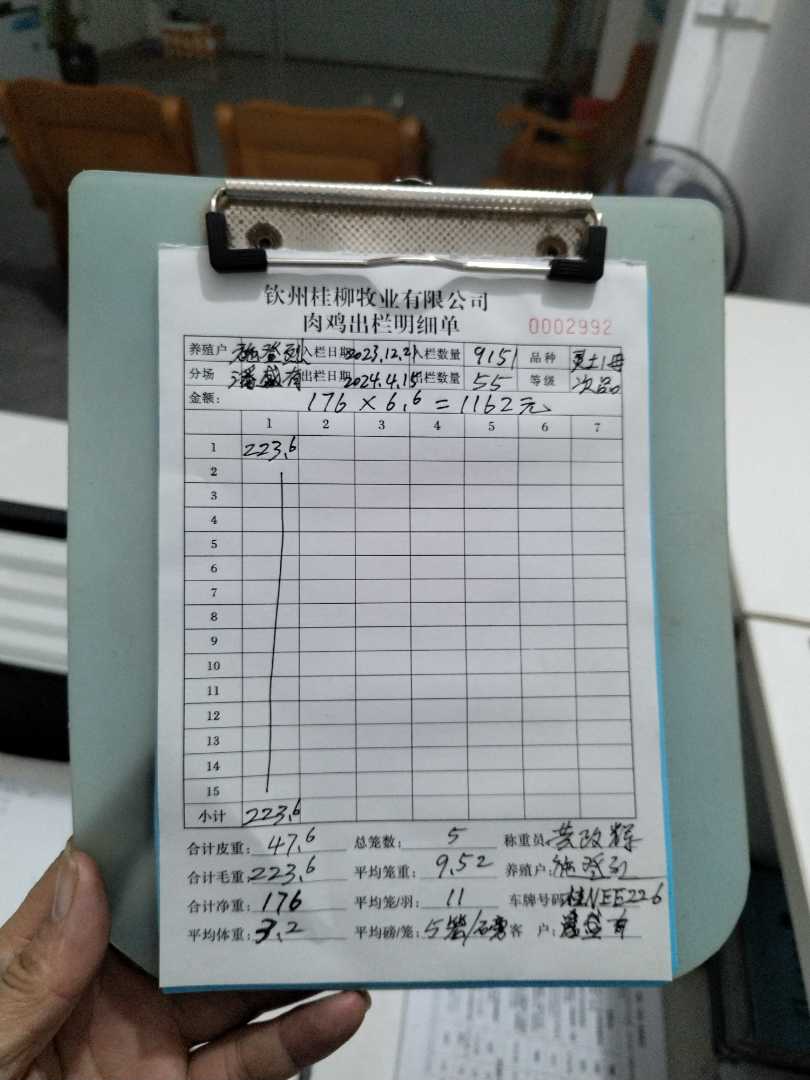 钦州桂柳牧业有限公司
肉鸡出栏明细单 0002992
养殖户 施登烈 入栏日期 2023.12.21 入栏数量 9151 品种 土1母
分场 潘盛有 出栏日期 2024.4.15 出栏数量 55 等级 次品
金额: 176 × 6.6 = 1162元
1 2 3 4 5 6 7
1 223.6
2
3
4
5
6
7
8
9
10
11
12
13
14
15
小计 223.6
合计皮重: 47.6 总笼数: 5 称重员
合计毛重: 223.6 平均笼重: 9.52 养殖户: 施登烈
合计净重: 176 平均笼/羽: 11 车牌号码: 桂NEE226
平均体重: 3.2 平均磅/笼: 5 客 户: 潘盛有